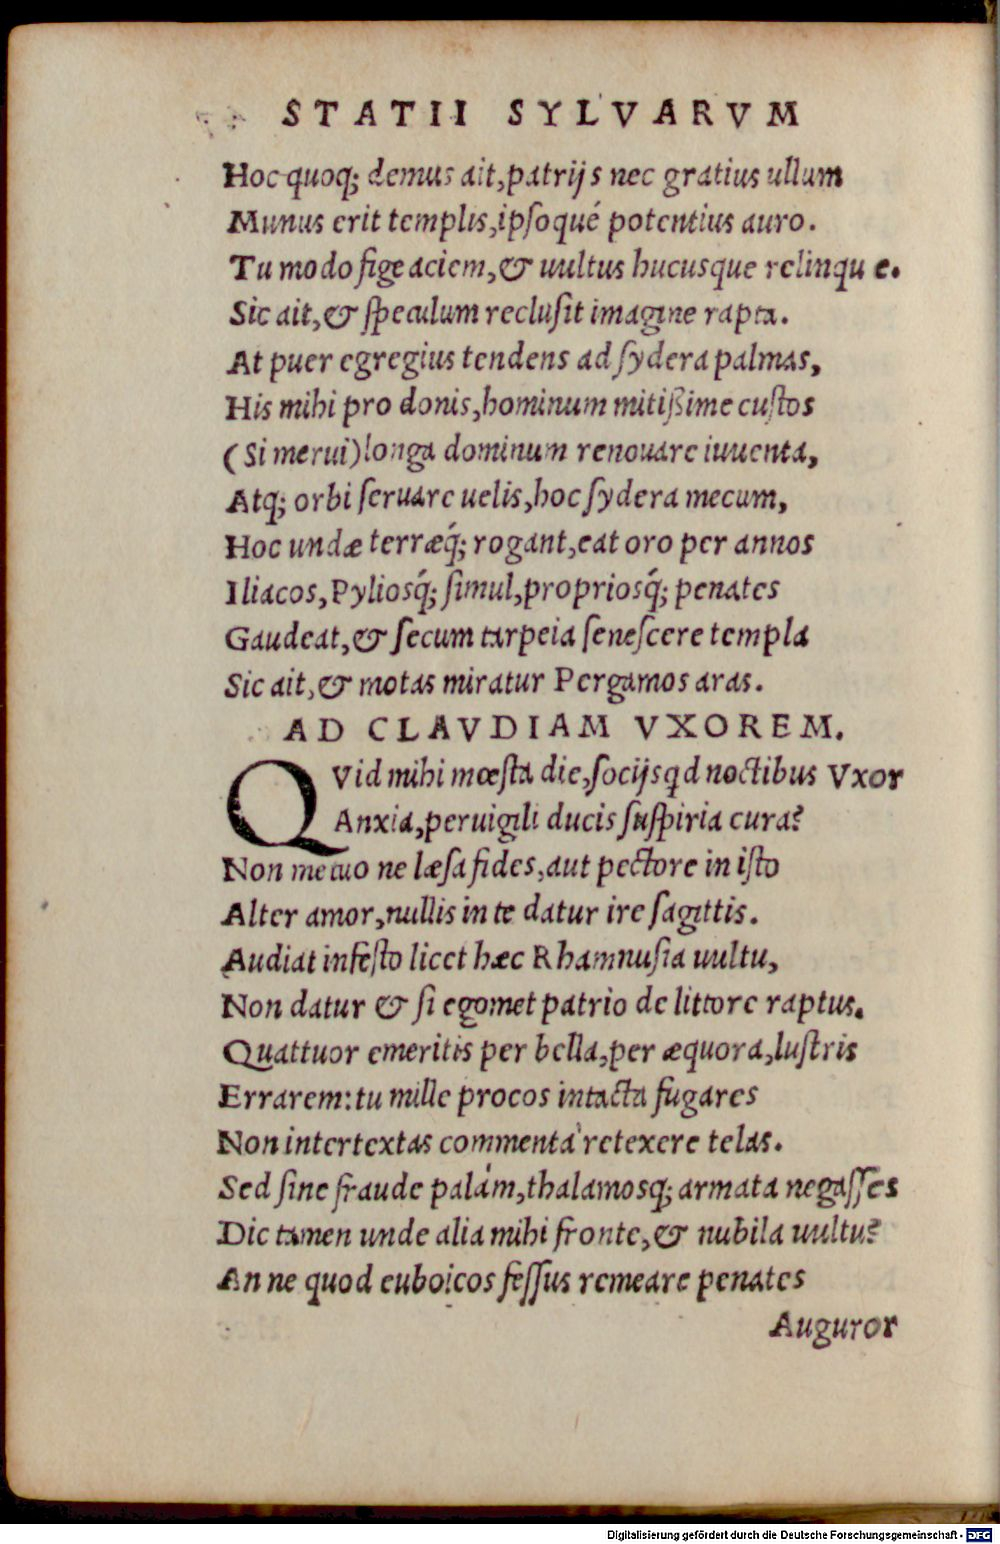 STATII SYLVARVM
Hoc quoq; demus ait, patrijs nec gratius ullum
Munus erit templis, ipsoqué potentius auro.
Tu modo fige aciem, & uultus hucusque relinque.
Sic ait, & speculum reclusit imagine rapta.
At puer egregius tendens ad sydera palmas,
His mihi pro donis, hominum mitißime custos
(Si merui) longa dominum renouare iuuenta,
Atq; orbi seruare uelis, hoc sydera mecum,
Hoc undæ terræq́; rogant, eat oro per annos
Iliacos, Pyliosq́; simul, propriosq́; penates
Gaudeat, & secum tarpeia senescere templa
Sic ait, & motas miratur Pergamos aras.
AD CLAVDIAM VXOREM.
QVid mihi mœsta die, socijs qd noctibus Vxor
Anxia, peruigili ducis suspiria cura?
Non metuo ne læsa fides, aut pectore in isto
Alter amor, nullis in te datur ire sagittis.
Audiat infesto licet hæc Rhamnusia uultu,
Non datur & si egomet patrio de littore raptus.
Quattuor emeritis per bella, per æquora, lustris
Errarem: tu mille procos intacta fugares
Non intertextas commenta retexere telas.
Sed sine fraude palám, thalamosq; armata negasses
Dic tamen unde alia mihi fronte, & nubila uultu?
An ne quod euboicos fessus remeare penates
Auguror
Digitalisierung gefördert durch die Deutsche Forschungsgemeinschaft - DFG